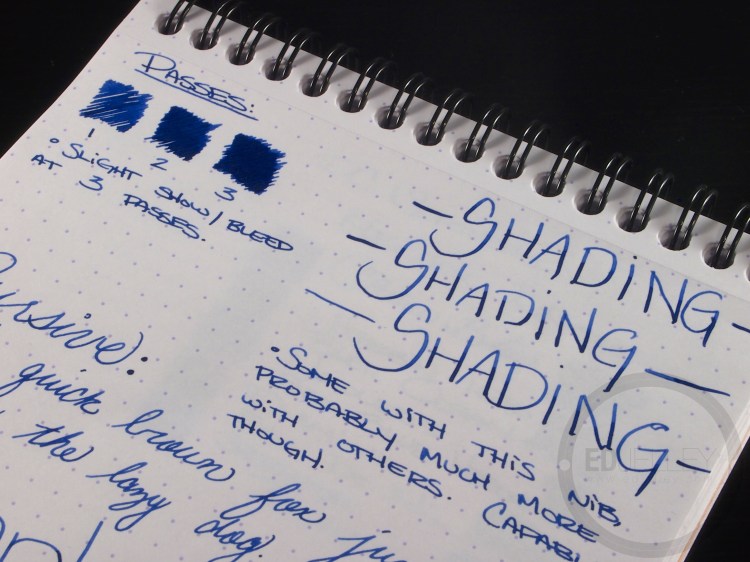 PASSES:
1 2 3
• SLIGHT SHOW/BLEED
AT 3 PASSES.
-SHADING-
-SHADING-
-SHADING-
• SOME WITH THIS NIB,
PROBABLY MUCH MORE
WITH OTHERS. CAPABL
THOUGH.
Cursive:
quick brown fox ju
the lazy dog.
ED